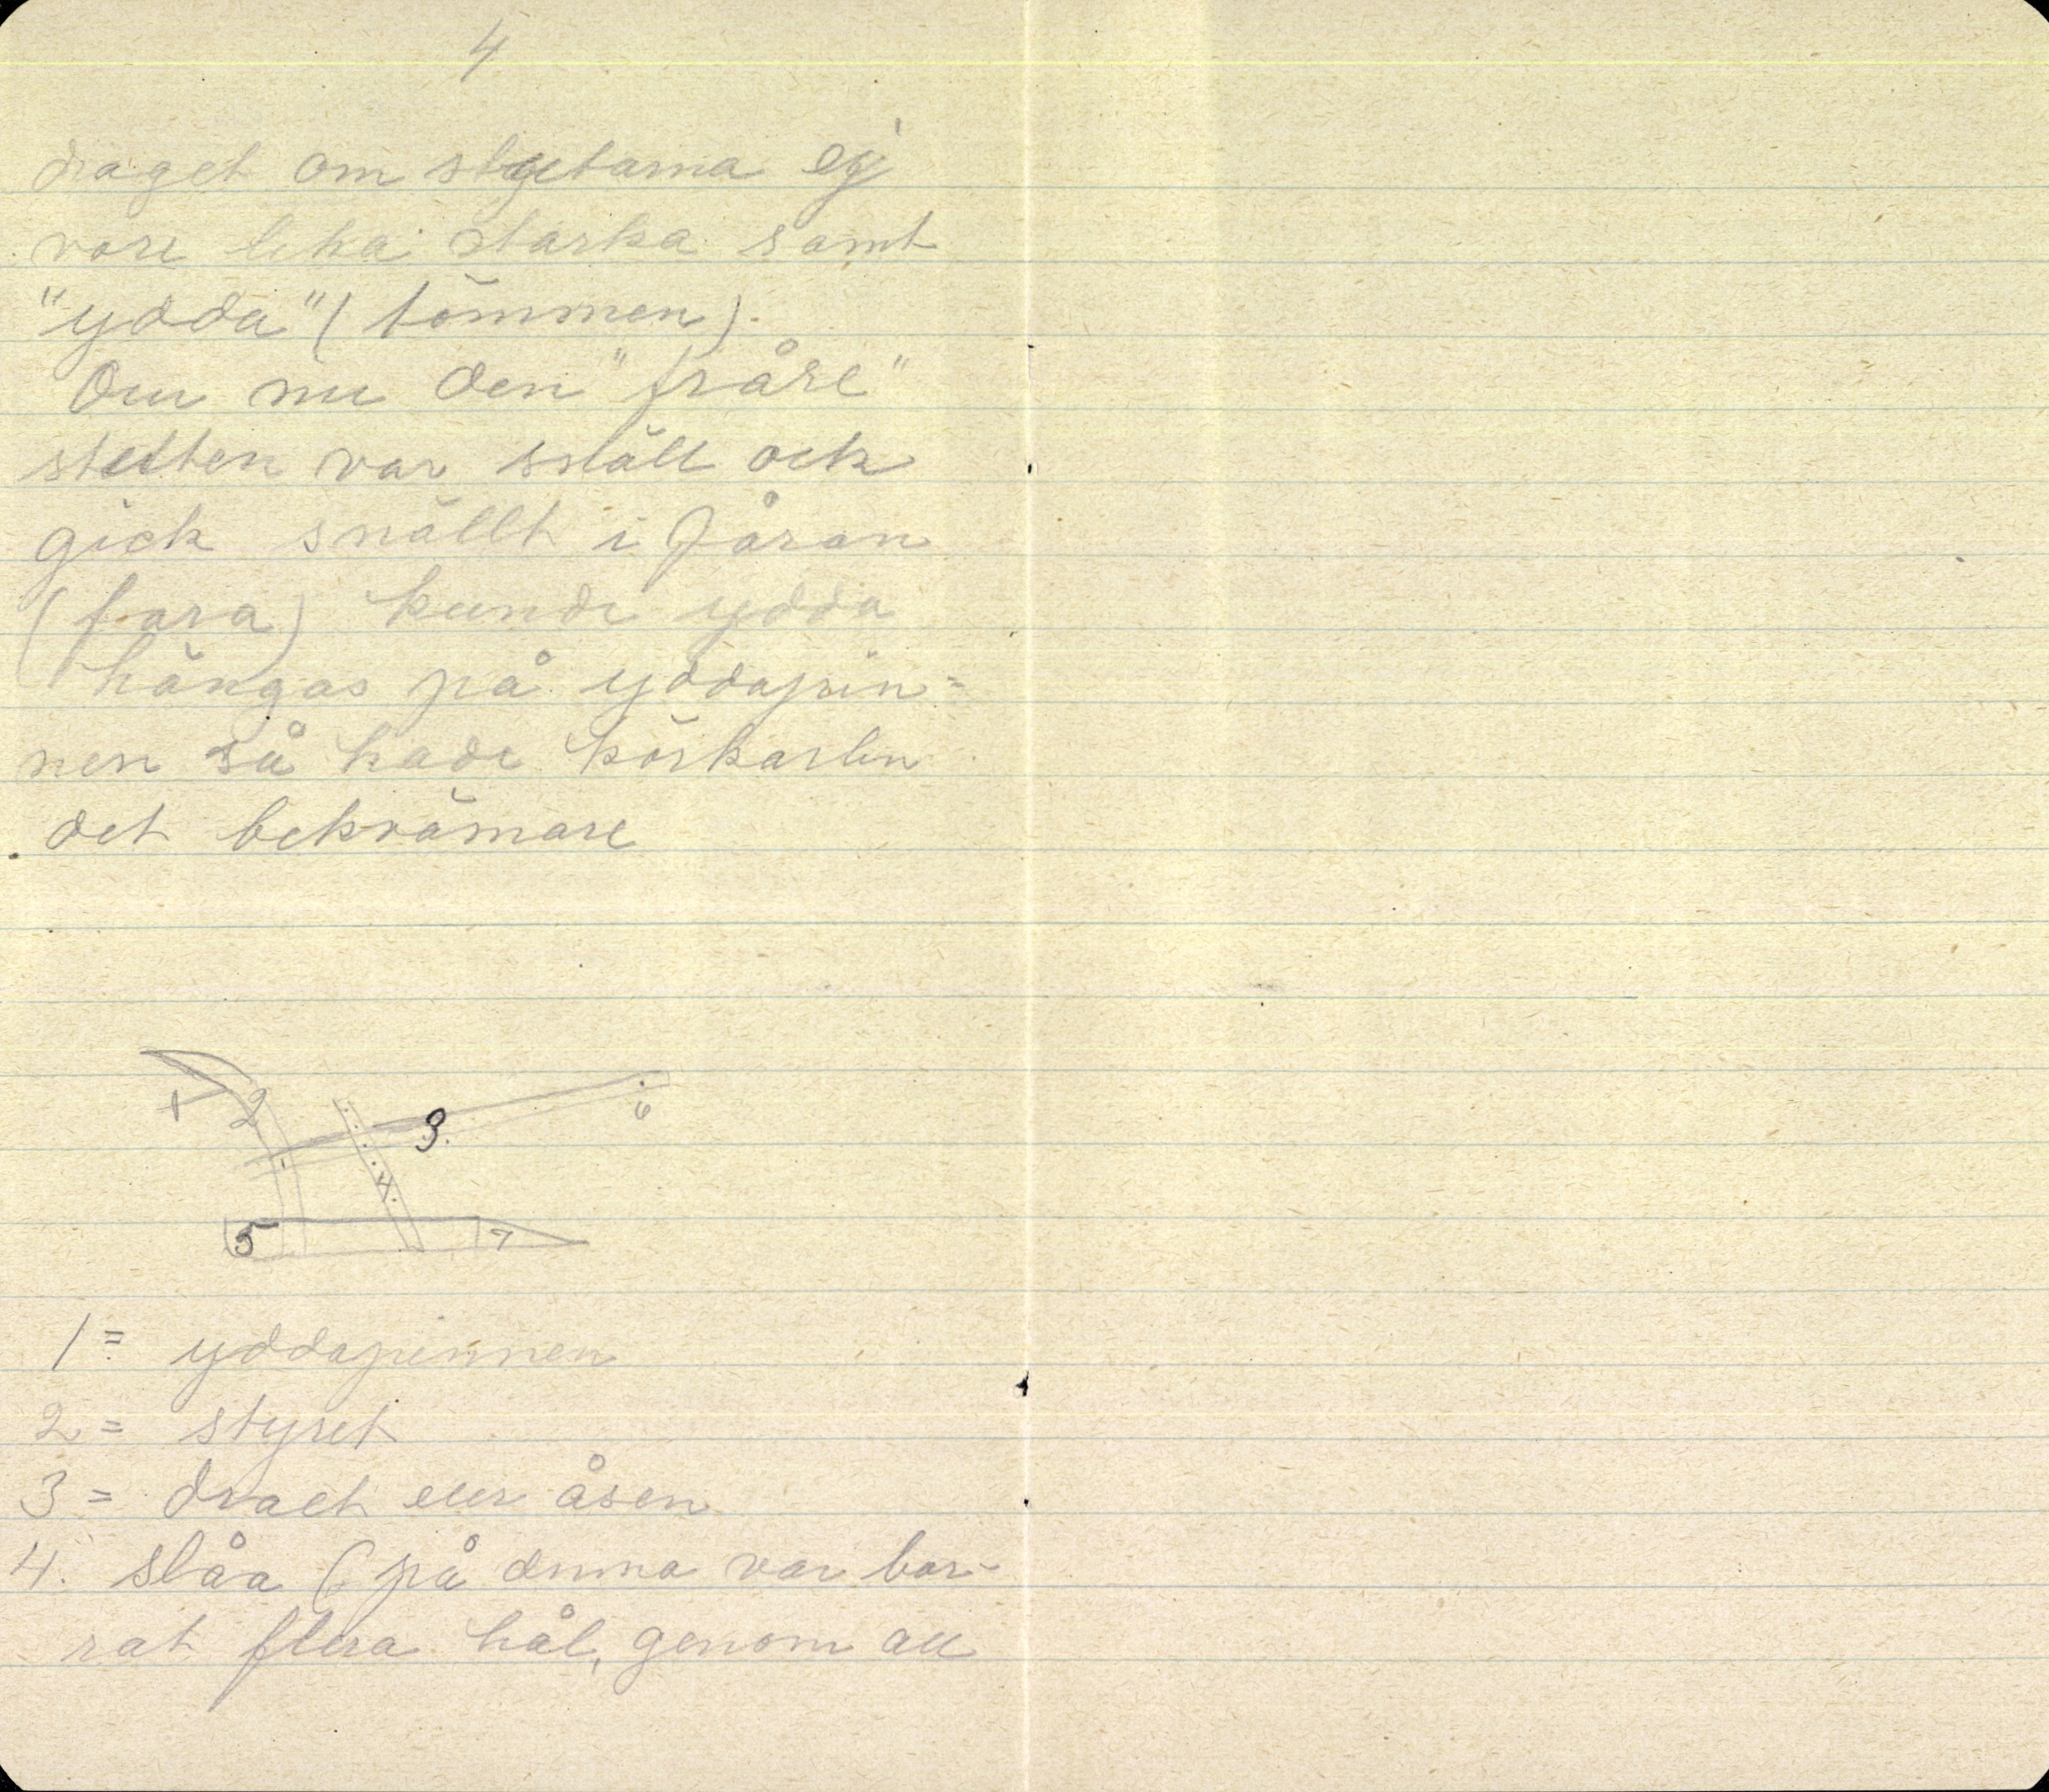 4
draget om stutarna ej
vore lika starka samt
"ydda" (tömmen).
Om nu den "fråre"
stutten var snäll ock
gick snällt i fåran
(fara) kunde ydda
hängas på yddapin=
nen så hade körkarlen
det bekvämare
1 2 3. 6
4.
5 7
1= yddapinnen
2= styret
3= draet eller åsen
4. slåa (på denna var bor-
rat flera hål, genom att